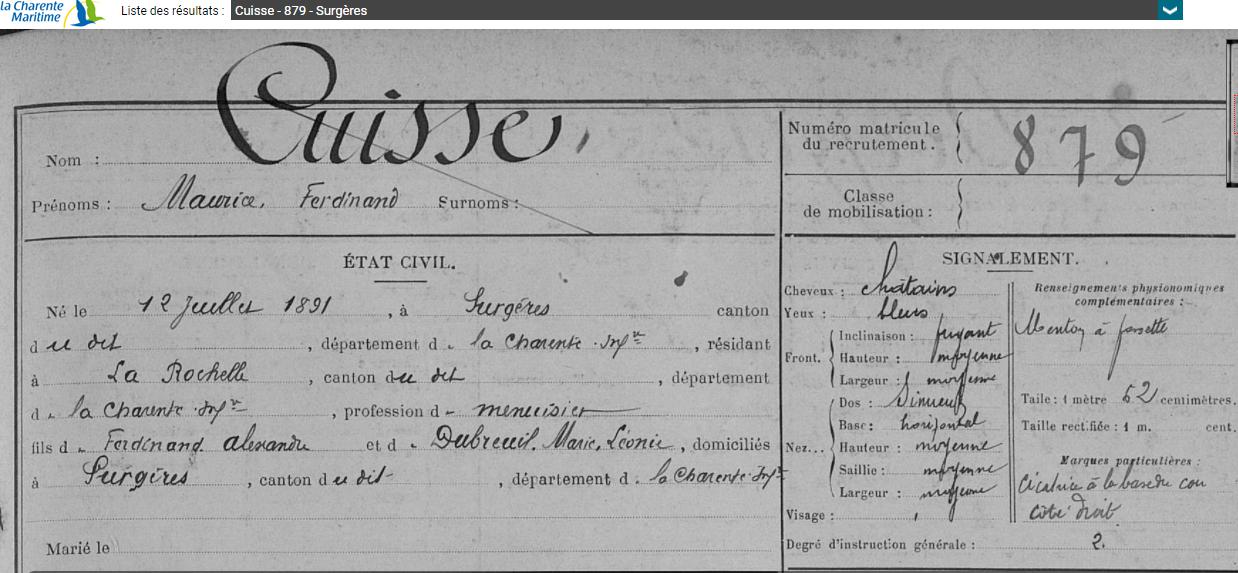 la Charente
Maritime
Liste des résultats : Cuisse - 879 - Surgères
Nom : Cuisse
Prénoms : Maurice, Ferdinand Surnoms :
Numéro matricule
du recrutement. 879
Classe
de mobilisation :
ÉTAT CIVIL.
Né le 12 Juillet 1891, à Surgères canton
du dit, département de la Charente Infre, résidant
à La Rochelle, canton du dit, département
de la Charente Infre, profession de menuisier
fils de Ferdinand alexandre et de Dubreuil, Marie, Léonie, domiciliés
à Surgères, canton du dit, département de la Charente Infre
Marié le
SIGNALEMENT.
Cheveux : châtains
Yeux : bleus
Front. Inclinaison : fuyant
Hauteur : moyenne
Largeur : moyenne
Nez... Dos : sinueux
Base : horizontal
Hauteur : moyenne
Saillie : moyenne
Largeur : moyenne
Visage :
Renseignements physionomiques
complémentaires :
Menton à fossette
Taille : 1 mètre 62 centimètres.
Taille rectifiée : 1 m. cent.
Marques particulières :
Cicatrice à la base du cou
côté droit
Degré d'instruction générale : 2.